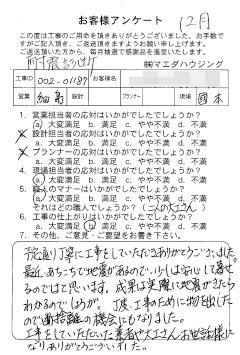 お客様アンケート 12月
この度は工事のご用命を頂きありがとうございました。お手数で
すがご記入頂き、ご返送頂きますようお願い申し上げます。
ご返送頂いた方から、毎月抽選で感謝品を進呈します。
耐震診断 ㈱マエダハウジング
工事ID 002-01187 お客様名
営業 細島 設計 プランナー 現場 國本
1. 営業担当者の応対はいかがでしたでしょうか?
a 大変満足 b. 満足 c. やや不満 d. 不満
設計担当者の応対はいかがでしたでしょうか?
a 大変満足 b. 満足 c. やや不満 d. 不満
プランナーの応対はいかがでしたでしょうか?
a 大変満足 b. 満足 c. やや不満 d. 不満
4. 現場担当者の応対はいかがでしたでしょうか?
a 大変満足 b. 満足 c. やや不満 d. 不満
5. 職人のマナーはいかがでしたでしょうか?
a 大変満足 b. 満足 c. やや不満 d. 不満
それはどの職人でしょうか(二人の大工さん)
6. 工事の仕上がりはいかがでしたでしょうか?
a. 大変満足 b. 満足 c. やや不満 d. 不満
7. その他、ご意見・ご要望をお書き下さい。
予定通り丁寧に工事をしていただきありがとうございました。
最近あちこちで地震があるので、少しは安心して過せ
るのではと思います。成果は実際に地震がきたら
わかるのでしょうが、工事のために物を動かした
ので断捨離の機会にもなりました。
工事をしていただいた業者や大工さんお世話様に
なりありがとうございました。